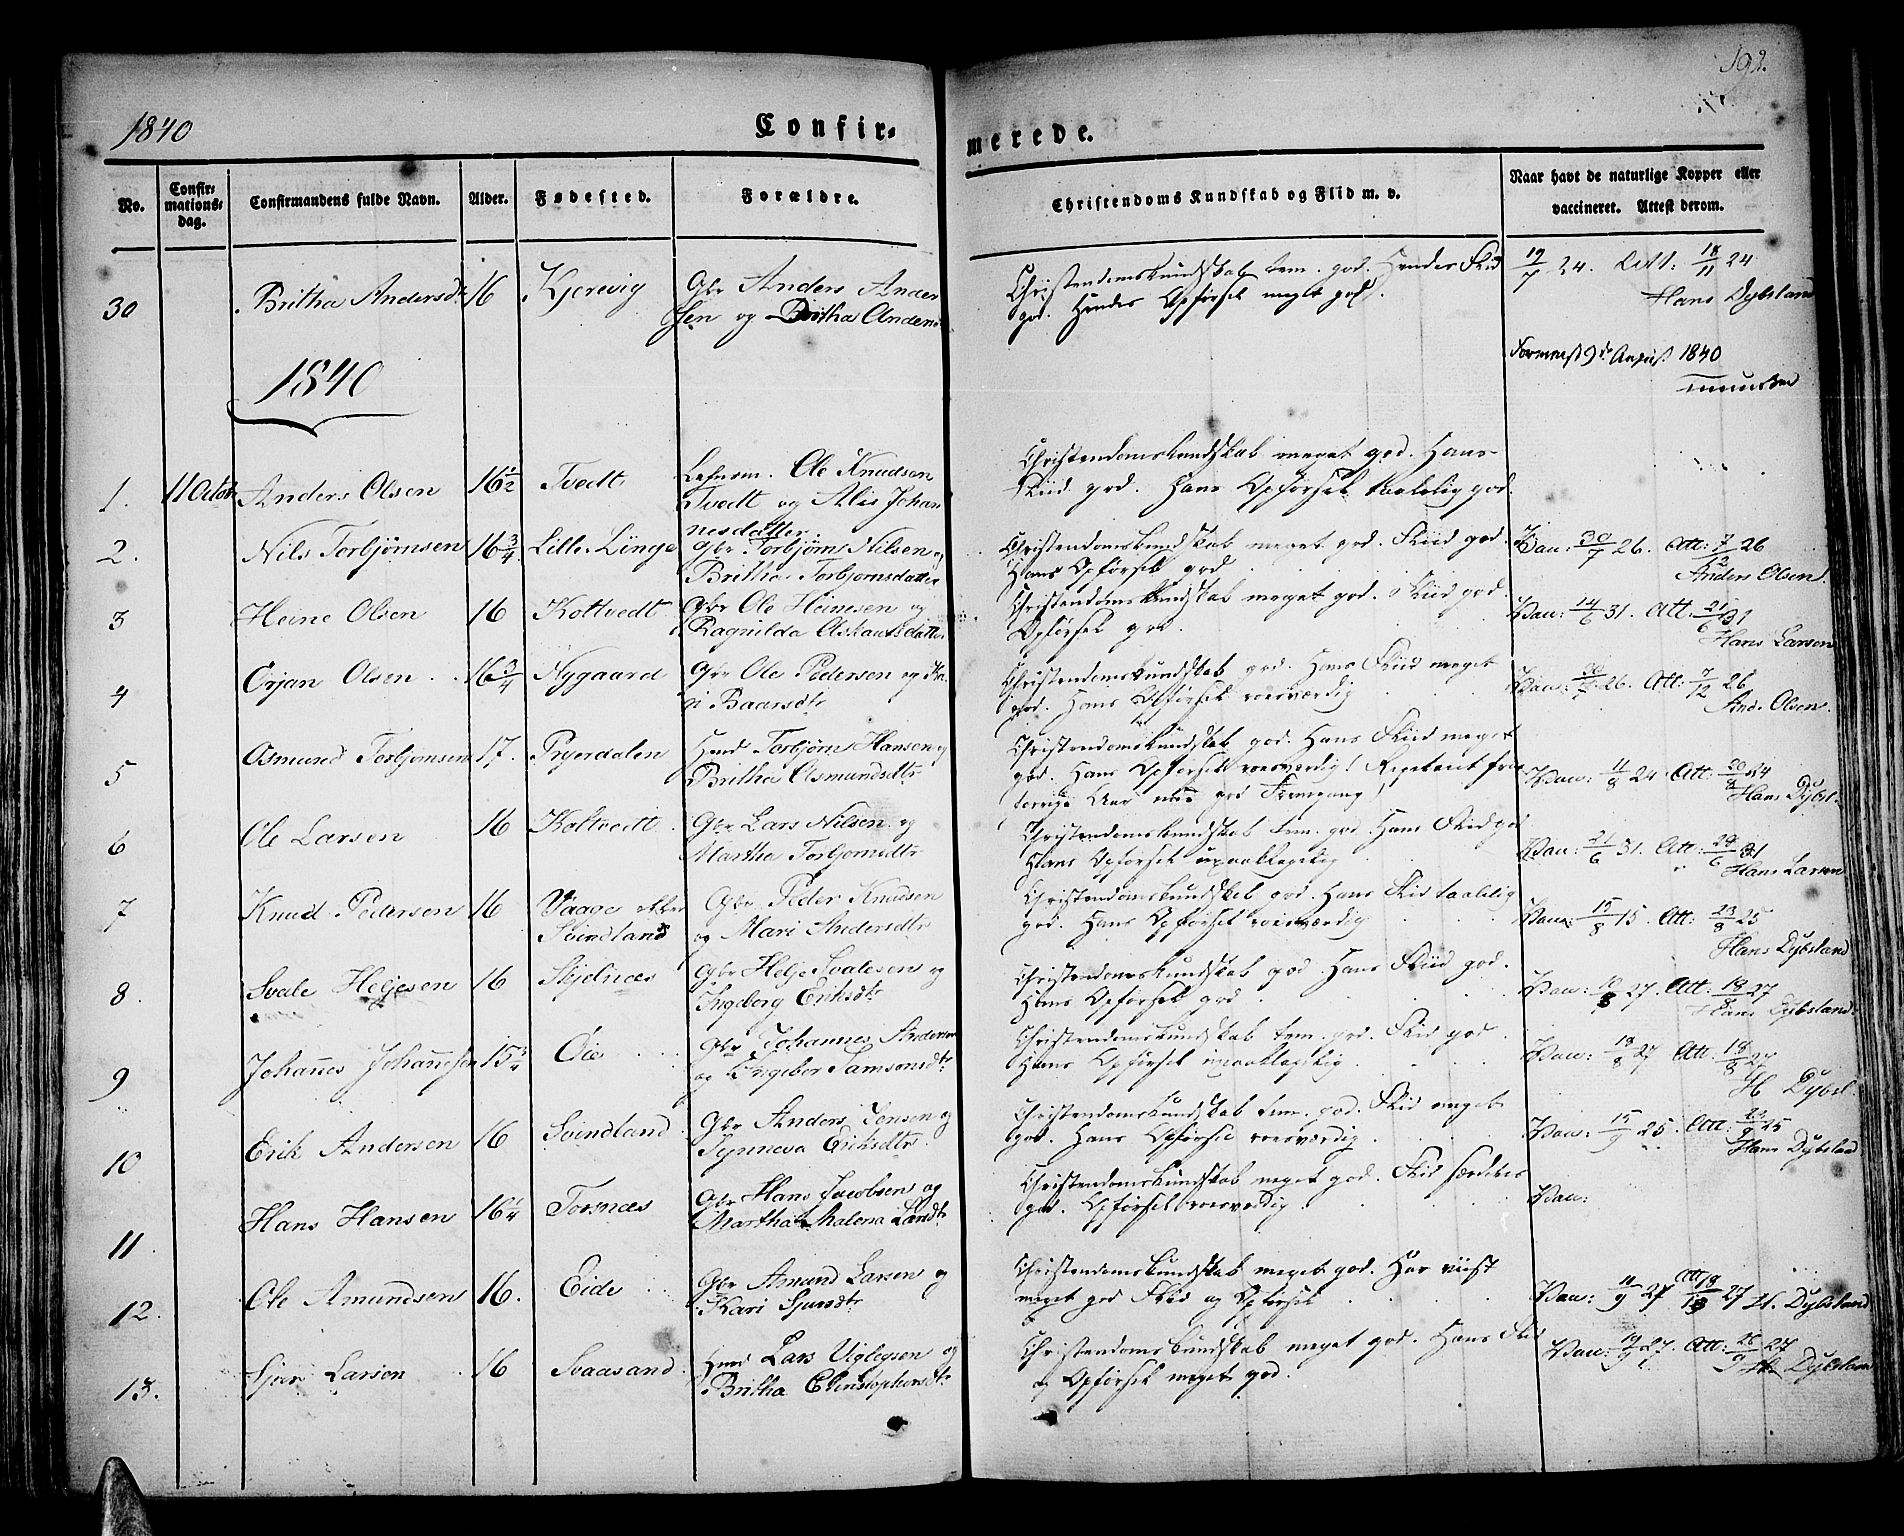 192.
1840
Confir-
merede.
No.
Confir-
mations-
dag.
Confirmandens fulde Navn.
Alder.
Fødested.
Forældre.
Christendoms Kundskab og Flid m. v.
Naar havt de naturlige Kopper eller
vaccineret. Attest derom.
30 Britha Andersdr 16 Kjerevig Gbr Anders Ander
sen og Britha Anders
Christendomskundskab tem. god. Hendes Fliid
god. Hendes Opførsel meget god.
19/7 24. Att: 18/11 24
Hans Dybsland
1840
August 1840
1. 11 Octob Anders Olsen 16 1/2 Tvedt Ole Knudsen
Tvedt og Johan
nesdatter
Christendomskundskab meget god. Hans
Fliid god. Hans Opførsel taalelig god.
2. Nils Torbjørnsen 16 3/4 Lille Linge Gbr Torbjørn Nilsen og
Britha Torbjornsdatter
Christendomskundskab meget god. Fliid god.
Hans Opførsel god
Vac: 30/7 26. Att: 26
Anders Olsen.
3 Heine Olsen 16 Koltvedt Gbr Ole Heinesen og
Ragnilda
Christendomskundskab meget god. Fliid god.
Opførsel god.
Vac: 14/6 31. Att: 21/6 31
Hans Larsen
4 Ørjan Olsen 16 3/4 Nygaard Gbr Ole Pedersen og Ka
ri Baarsdr
Christendomskundskab god. Hans Fliid meget
god. Hans Opførsel roesværdig
Vac: 26. Att: 7/12 26
And. Olsen.
5 Osmund Torbjornsen 17. Pryerdalen Huusmd Torbjørn Hansen og
Britha Osmundsdtr
Christendomskundskab god. Hans Fliid meget
god. Hans Opførsel roesværdig!
god Fremgang!
Vac: 11/8 24 Att: 24
Hans Dybsl.
6 Ole Larsen 16 Koltvedt. Gbr Lars Nilsen og
Martha Torbjornsdtr
Christendomskundskab tem. god. Hans Fliid god
Hans Opførsel upaaklagelig
Vac: 21/6 31. Att: 31
Hans Larsen
7 Knud Pedersen 16 Vaage
Svindland Gbr Peder Knudsen
og Mari Andersdtr
Christendomskundskab god. Hans Fliid taalelig
god. Hans Opførsel roesværdig
Vac: 15/8 15. Att: 23/8 25
Hans Dybsland
8. Svale Heljesen 16 Skjelnæs Gbr Helje Svalesen og
Ingeborg Eriksdtr
Christendomskundskab god. Hans Fliid god.
Hans Opførsel god
Vac: 10/8 27. Att: 18/8 27
Hans Dybsland.
9 Johannes Johannesen 15 3/4 Øie Gbr Johannes
og Ingebor Samsonsdtr
Christendomskundskab tem. god. Fliid god.
Hans Opførsel upaaklagelig
Vac: 18/8 27 Att: 18/8 27
H Dybsl.
10 Erik Andersen 16 Svindland Gbr Anders Jensen og
Synneva Eriksdtr.
Christendomskundskab tem. god. Fliid meget
god. Hans Opførsel roesværdig.
Vac: 15/9 25. Att: 25
Hans Dybsland
11. Hans Hansen 16 1/4 Torsnæs Gbr Hans Jacobsen og
Martha Malena
Christendomskundskab meget god. Fliid særdeles
god. Opførsel roesværdig.
Vac:
12. Ole Amundsen 16. Eide Gbr Amund Larsen og
Kari Sjursdtr
Christendomskundskab meget god. Har viist
meget god Fliid og Opførsel
Vac: 11/9 27 Att: 27 H. Dybsland
13. Sjur Larsen 16 Svaasand Huusmd Lars Viglegsen og
Britha Christophersdtr
Christendomskundskab meget god. Hans Fliid
og Opførsel meget god.
Vac: 19/9 27. Att: 27
Dybsland